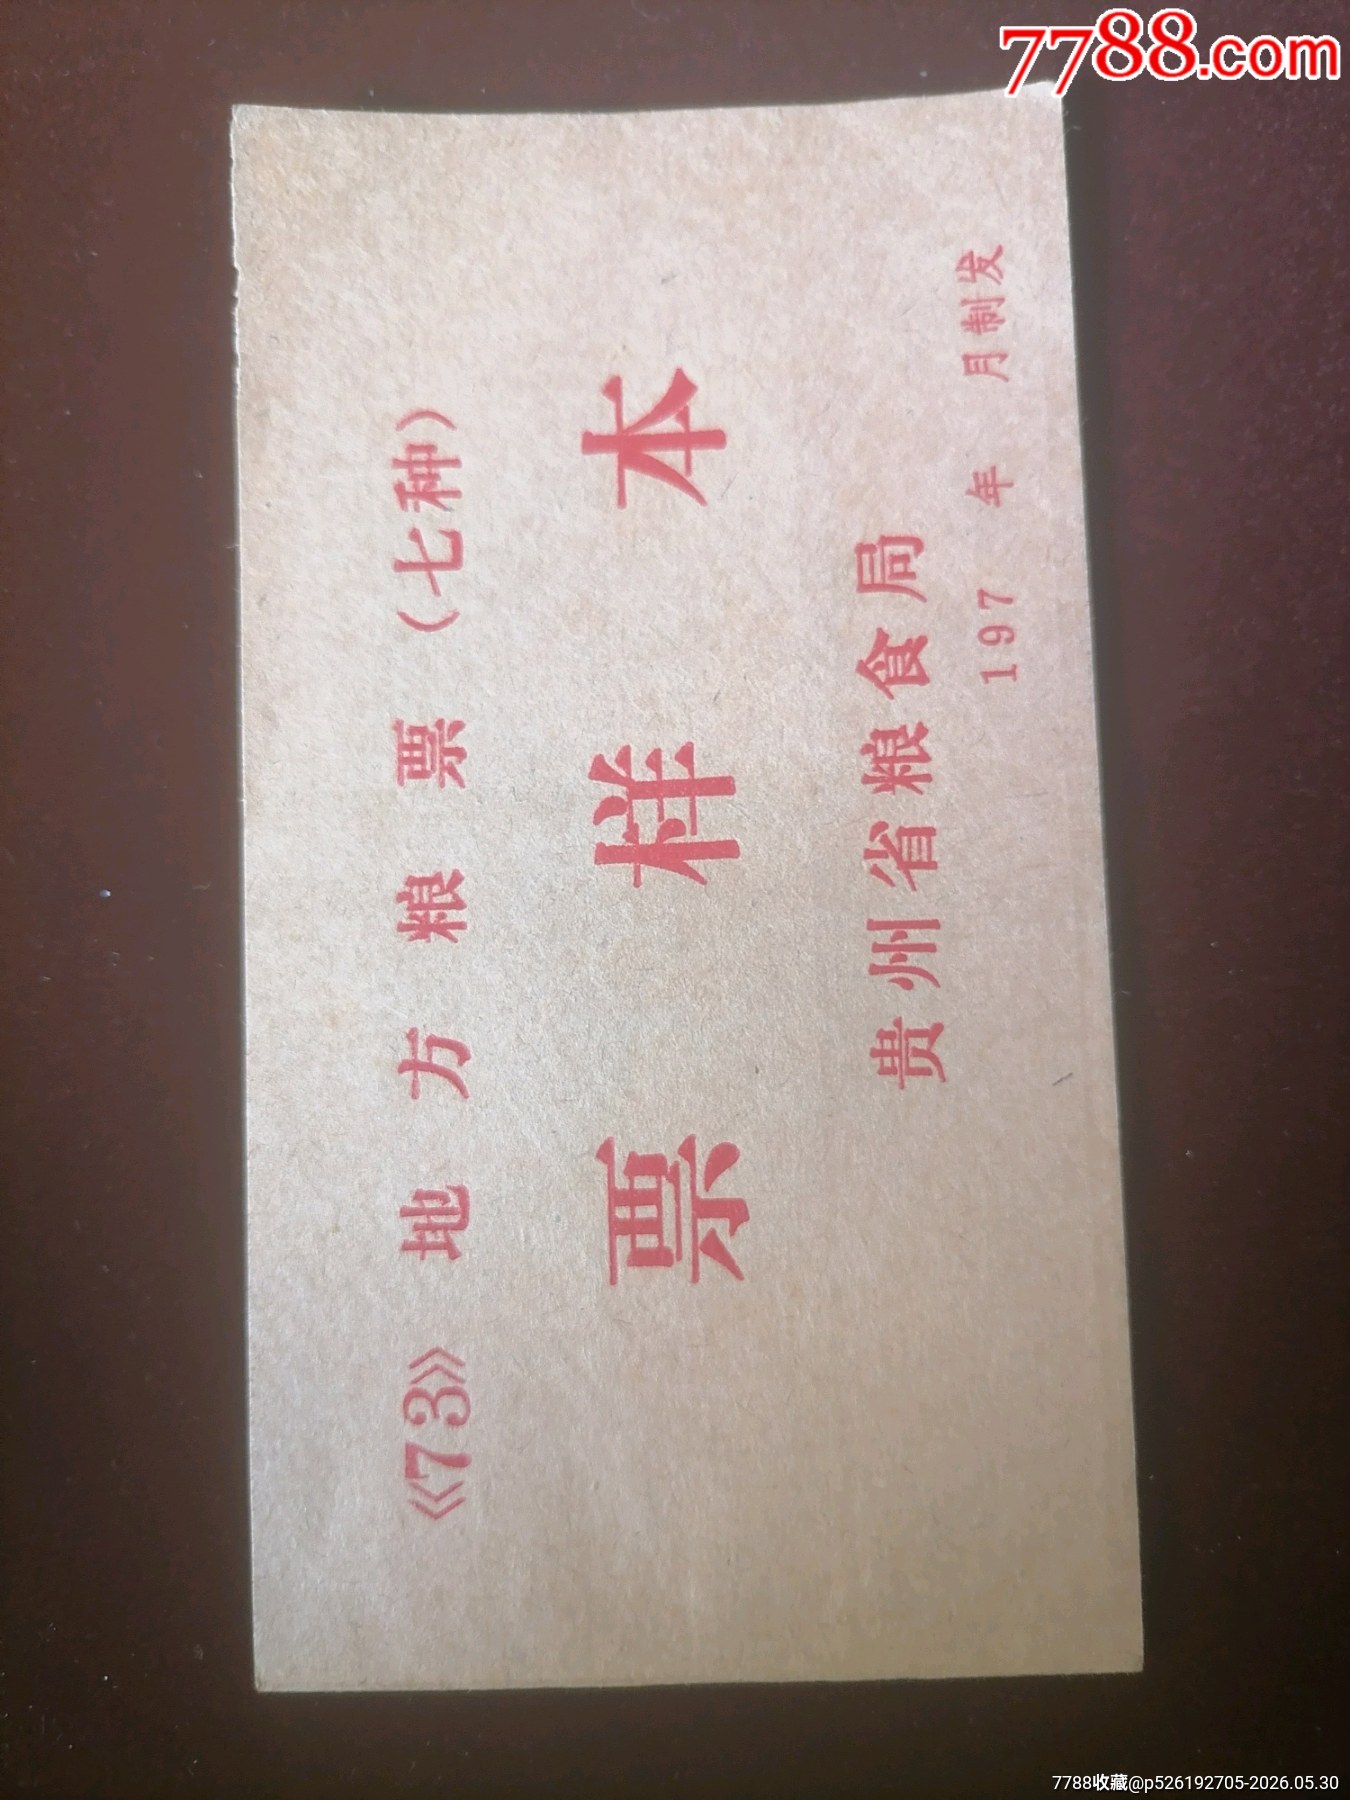 7788.com
《73》地方粮票（七种）
票样本
贵州省粮食局
197 年 月制发
7788收藏@p526192705-2026.05.30